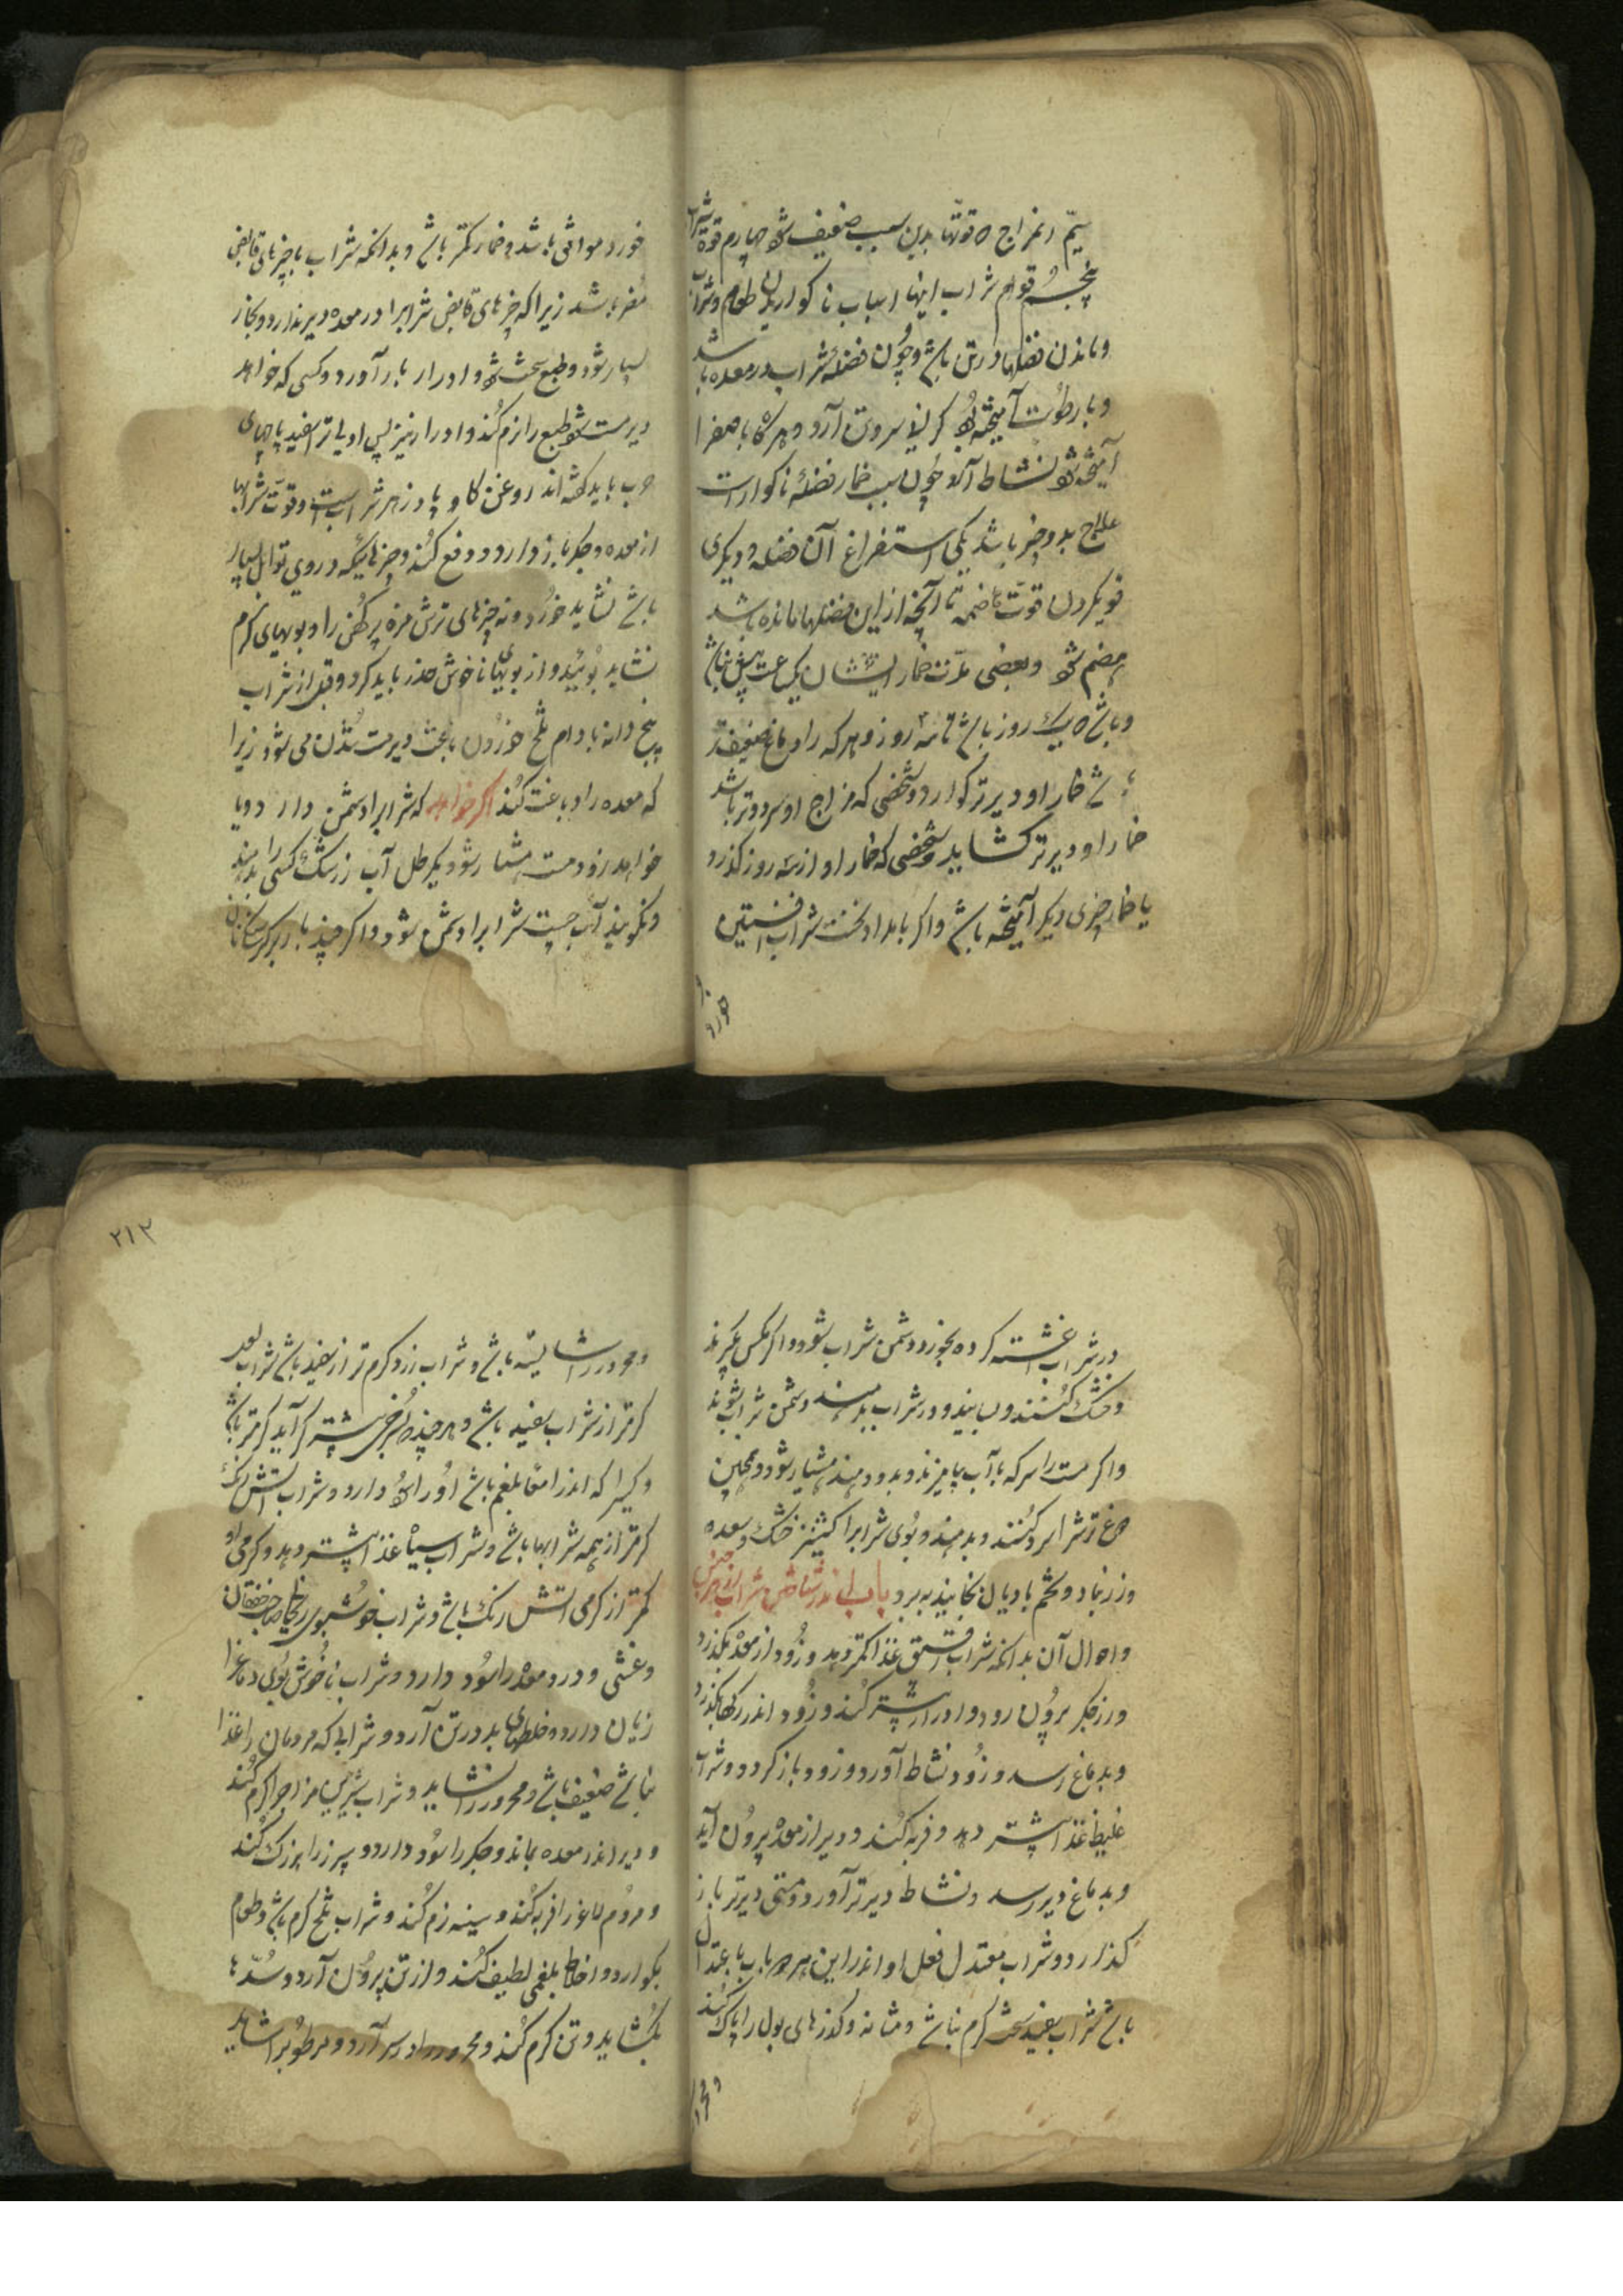 سیّم امزاج و قوتها بدین سبب ضعیف شود چهارم قوة شراب
پنجم قوام شراب اینها اسباب ناکواریدن طعام و شراب
و ماندن فضلها در تن باشد و چون فضلهٔ شراب در معده باشد
و با رطوبت آمیخته بود کرانی سر و تن آرد و هرکاه با صفرا
آمیخته شود نشاط آرد چون سبب خمار فضلهٔ ناکوار است
علاج بدو چیز باشد یکی استفراغ آن فضله و دیکری
قوی کردن قوّت هاضمه تا آنچه از این فضلها مانده باشد
هضم شود و بعضی مدّت خمار ایشان یکساعت بیش نباشد
و باشد که یک روز باشد تا سه روز و هر که را دماغ ضعیف‌تر
باشد خمار او دیرتر کوارد و شخصی که مزاج او سردتر باشد
خمار او دیرتر کشاید و شخصی که خمار او از سه روز کذرد
با خمار چیزی دیکر آمیخته باشد و اکر بامداد نخست شراب افسنتین
خورد
خورد موافق باشد و خمار کمتر باشد و بدانکه شراب با چیزهای قابض
مضر باشد زیرا که چیزهای قابض شراب را در معده دیر بدارد و بخار
بسیار شود و طبع سخت شود و ادرار باز آورد و کسی که خواهد
دیر مست شود طبع را نرم کند و ادرار نیز پس اولی‌تر اسفیدباجهای
چرب باید کفته‌اند روغن کاو پادزهر شراب است و قوت شرابها
از معده و جکر باز دارد و دفع کند و چیزهائیکه در وی توابل بسیار
باشد نشاید خورد و نه چیزهای ترش مزه پرکهن را و بویهای کرم
نشاید بوئید و از بویهای ناخوش حذر باید کرد و قبل از شراب
پنج دانه بادام تلخ خوردن باعث دیر مست شدن می شود زیرا
که معده را دباغت کند اکر خواهد که شراب را دشمن دارد و یا
خواهد زود مست هشیار شود یکرطل آب زرشک کسی را بدهند
و نکویند آب چیست شراب را دشمن شود و اکر چند بار
در شراب غشته کرده بخورد دشمن شراب شود و اکر مکس بکیرند
و خشک کنند و بسایند و در شراب بدهند دشمن شراب شوند
و اکر مست را سرکه با آب بیامیزند و بدو دهند هشیار شود و همچنین
دوغ ترش سرد کنند و بدهند و بوی شراب را کشنیز خشک و سعد
و زرنباد و تخم بادیان بخایند ببرد باب اندر شناختن شراب از هر جنس
و احوال آن بدانکه شراب رقیق غذا کمتر دهد و زود از معده بکذرد
و از جکر بیرون رود و ادرار بیشتر کند و زود اندر رکها بکذرد
و بدماغ رسد و زود نشاط آورد و زود باز کردد و شراب
غلیظ غذا بیشتر دهد و فربه کند و دیر از معده بیرون آید
و بدماغ دیر رسد و نشاط دیرتر آورد و مستی دیرتر باز
کذارد و شراب معتدل فعل او اندر این هر دو باب باعتدال
باشد شراب سفید سخت کرم نباشد و مثانه و کذرهای بول را پاک کند
۲۱۲
و محرور را شایسته باشد و شراب زرد کرم تر از سفید باشد شراب لعل
کرم تر از شراب سفید باشد و هر چند سرخی بیشتر کراید کرم تر باشد
و کسی را که اندر امعا بلغم باشد او را سود دارد و شراب آتش رنک
کرم تر از همه شرابها باشد و شراب سیاه غذا بیشتر دهد و کرمی او
کمتر از کرمی آتش رنک باشد و شراب خوشبوی ریحانی صاحب خفقان
و غشی و درد معده را سود دارد و شراب ناخوش بوی دماغ را
زیان دارد و خلطهای بد در تن آرد و شرابی که مردمان را غذا
نباشد ضعیف باشد و محرور را نشاید و شراب شیرین مزاج را کرم کند
و دیر اندر معده بماند و جکر را سود دارد و سپرز را بزرک کند
و مردم لاغر را فربه کند و سینه نرم کند و شراب تلخ کرم باشد و طعام
بکوارد و اخلاط بلغمی لطیف کند و از تن بیرون آرد و سدّها
بکشاید و تن کرم کند و محرور را درد سر آرد و مرطوب را شاید